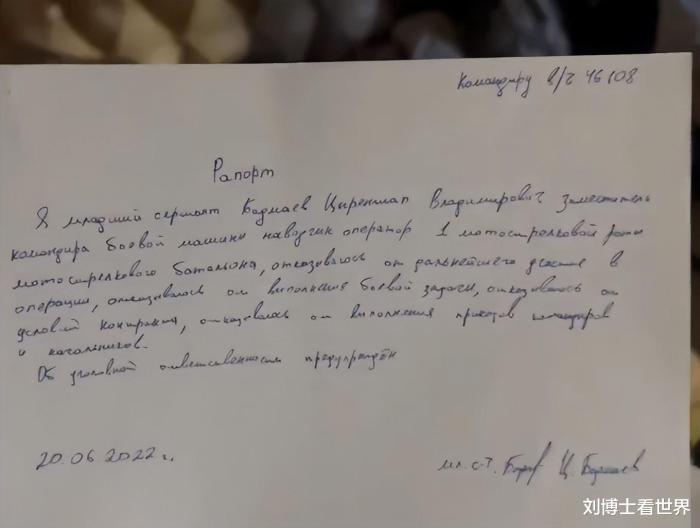 Командиру в/ч 46108
Рапорт
Я младший сержант Бадмаев Цыренжап Владимирович заместитель
командира боевой машины наводчик оператор 1 мотострелковой роты
мотострелкового батальона, отказываюсь от дальнейшего участие в
операции, отказываюсь от выполнения боевой задачи, отказываюсь от
условий контракта, отказываюсь от выполнения приказов командиров
и начальников.
Об уголовной ответственности предупреждён
20.06.2022 г.
мл. с-т. Ц. Бадмаев
刘博士看世界